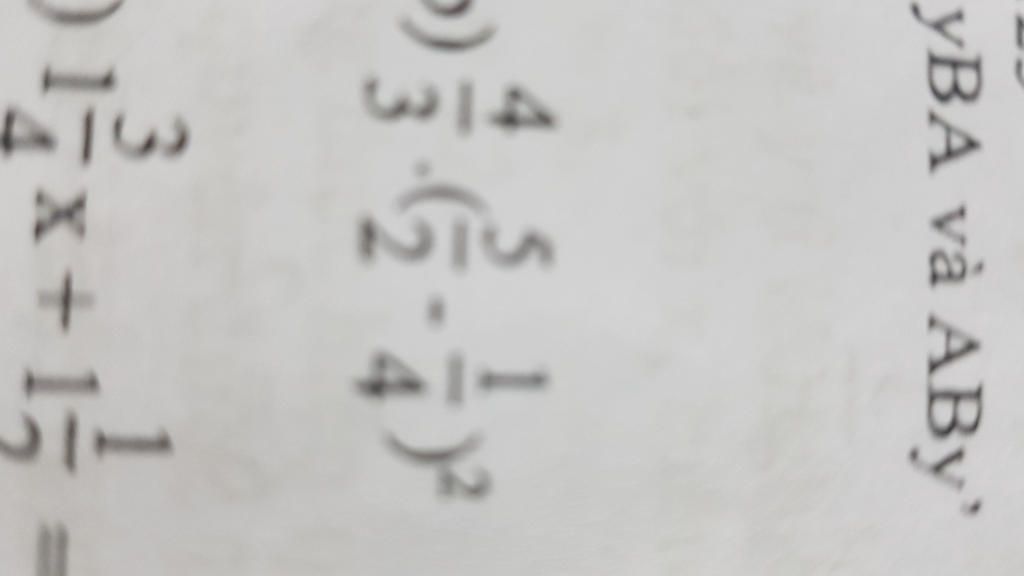 yBA và ABy'
) 4/3 . (5/2 - 1/4)²
) 1 3/4 x + 1 1/2 =